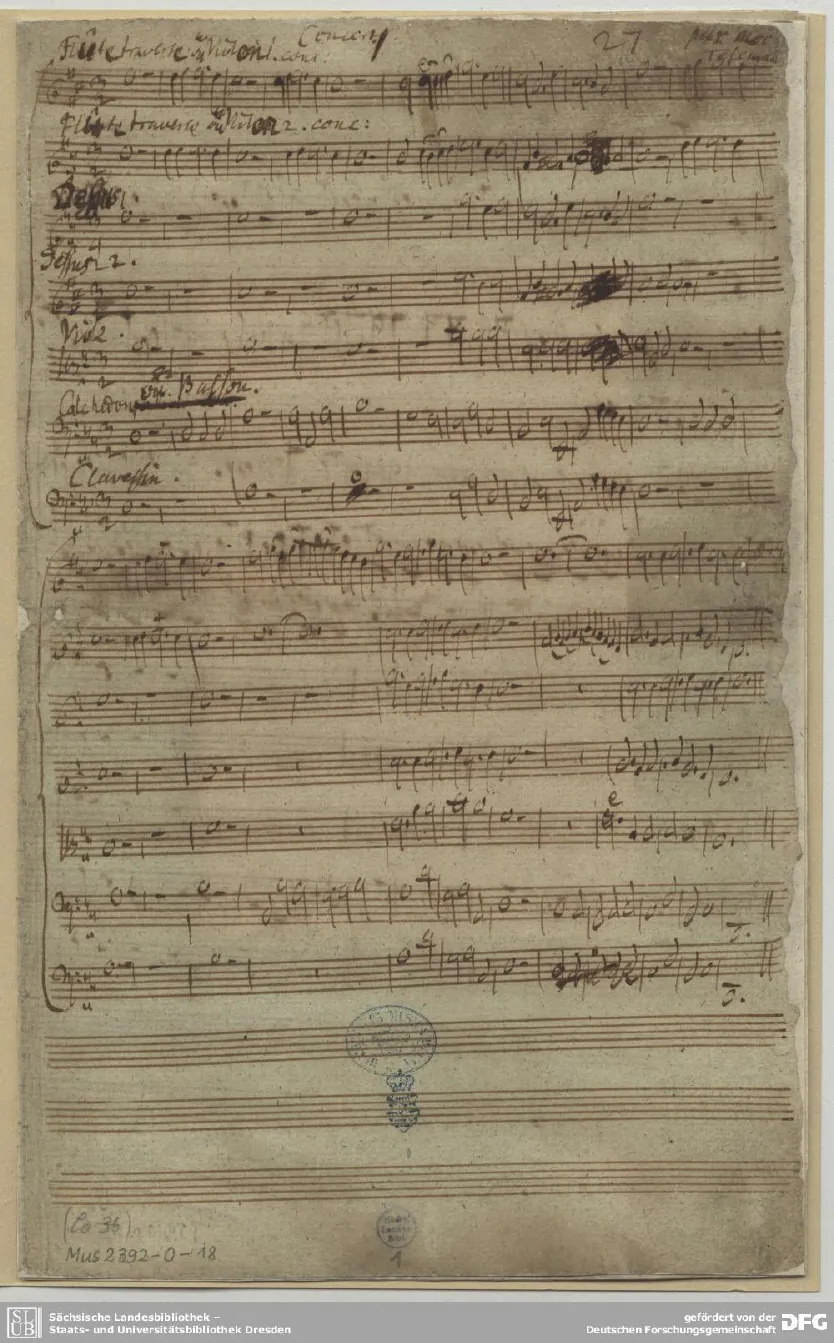 Concert. 27
Flûte traverse ou Violon 1. conc:
Flûte traverse ou Violon 2. conc:
Dessus 1
Dessus 2.
Calchedon Basson.
Clavessin.
e
(Ca 36)
Mus 2392-O-18
1
SLUB
Sächsische Landesbibliothek –
Staats- und Universitätsbibliothek Dresden
gefördert von der
Deutschen Forschungsgemeinschaft
DFG